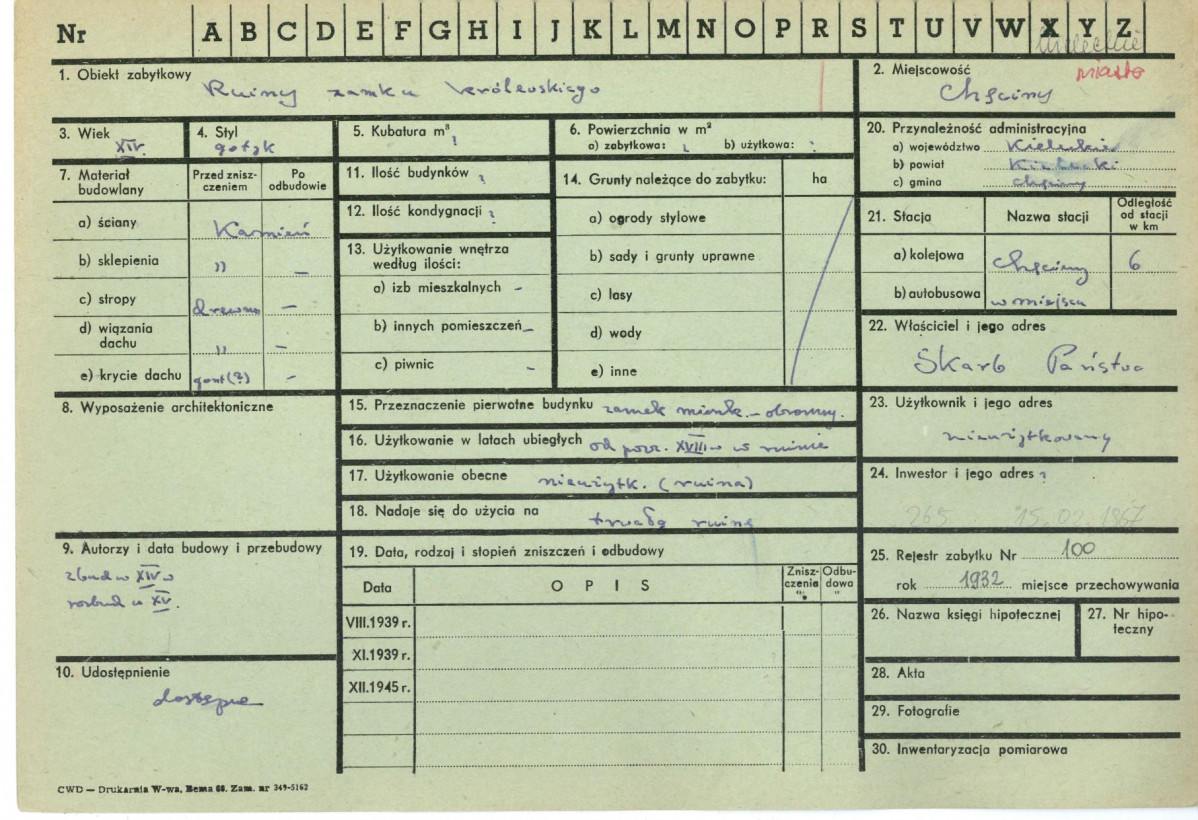 Nr A B C D E F G H I J K L M N O P R S T U V W X Y Z
miasto
1. Obiekt zabytkowy
Ruiny zamku królewskiego
2. Miejscowość
Chęciny
3. Wiek
XIV.
4. Styl
gotyk
5. Kubatura m³ ?
6. Powierzchnia w m²
a) zabytkowa: ? b) użytkowa: ?
20. Przynależność administracyjna
a) województwo Kieleckie
b) powiat Kielecki
c) gmina Chęciny
7. Materiał budowlany
Przed zniszczeniem
Po odbudowie
a) ściany Kamień
b) sklepienia " —
c) stropy drewno —
d) wiązania dachu " —
e) krycie dachu gont (?) —
11. Ilość budynków ?
12. Ilość kondygnacji ?
13. Użytkowanie wnętrza
według ilości:
a) izb mieszkalnych -
b) innych pomieszczeń -
c) piwnic -
14. Grunty należące do zabytku: ha
a) ogrody stylowe
b) sady i grunty uprawne
c) lasy
d) wody
e) inne
21. Stacja Nazwa stacji
Odległość
od stacji
w km
a) kolejowa Chęciny 6
b) autobusowa w miejscu
22. Właściciel i jego adres
Skarb Państwa
8. Wyposażenie architektoniczne
15. Przeznaczenie pierwotne budynku zamek mieszk. - obronny.
16. Użytkowanie w latach ubiegłych od pocz. XVIII w w ruinie
17. Użytkowanie obecne nieużytk. (ruina)
18. Nadaje się do użycia na trwałą ruinę
23. Użytkownik i jego adres
nieużytkowany
24. Inwestor i jego adres ?
265 15.02.1967
9. Autorzy i data budowy i przebudowy
zbud w XIV w
rozbud w XV.
19. Data, rodzaj i stopień zniszczeń i odbudowy
Data OPIS
Znisz-
czenie
%
Odbu-
dowa
"
VIII.1939 r.
XI.1939 r.
XII.1945 r.
25. Rejestr zabytku Nr 100
rok 1932 miejsce przechowywania
26. Nazwa księgi hipotecznej
27. Nr hipo-
teczny
10. Udostępnienie
dostępne
28. Akta
29. Fotografie
30. Inwentaryzacja pomiarowa
CWD — Drukarnia W-wa, Bema 65. Zam. nr 349-5162